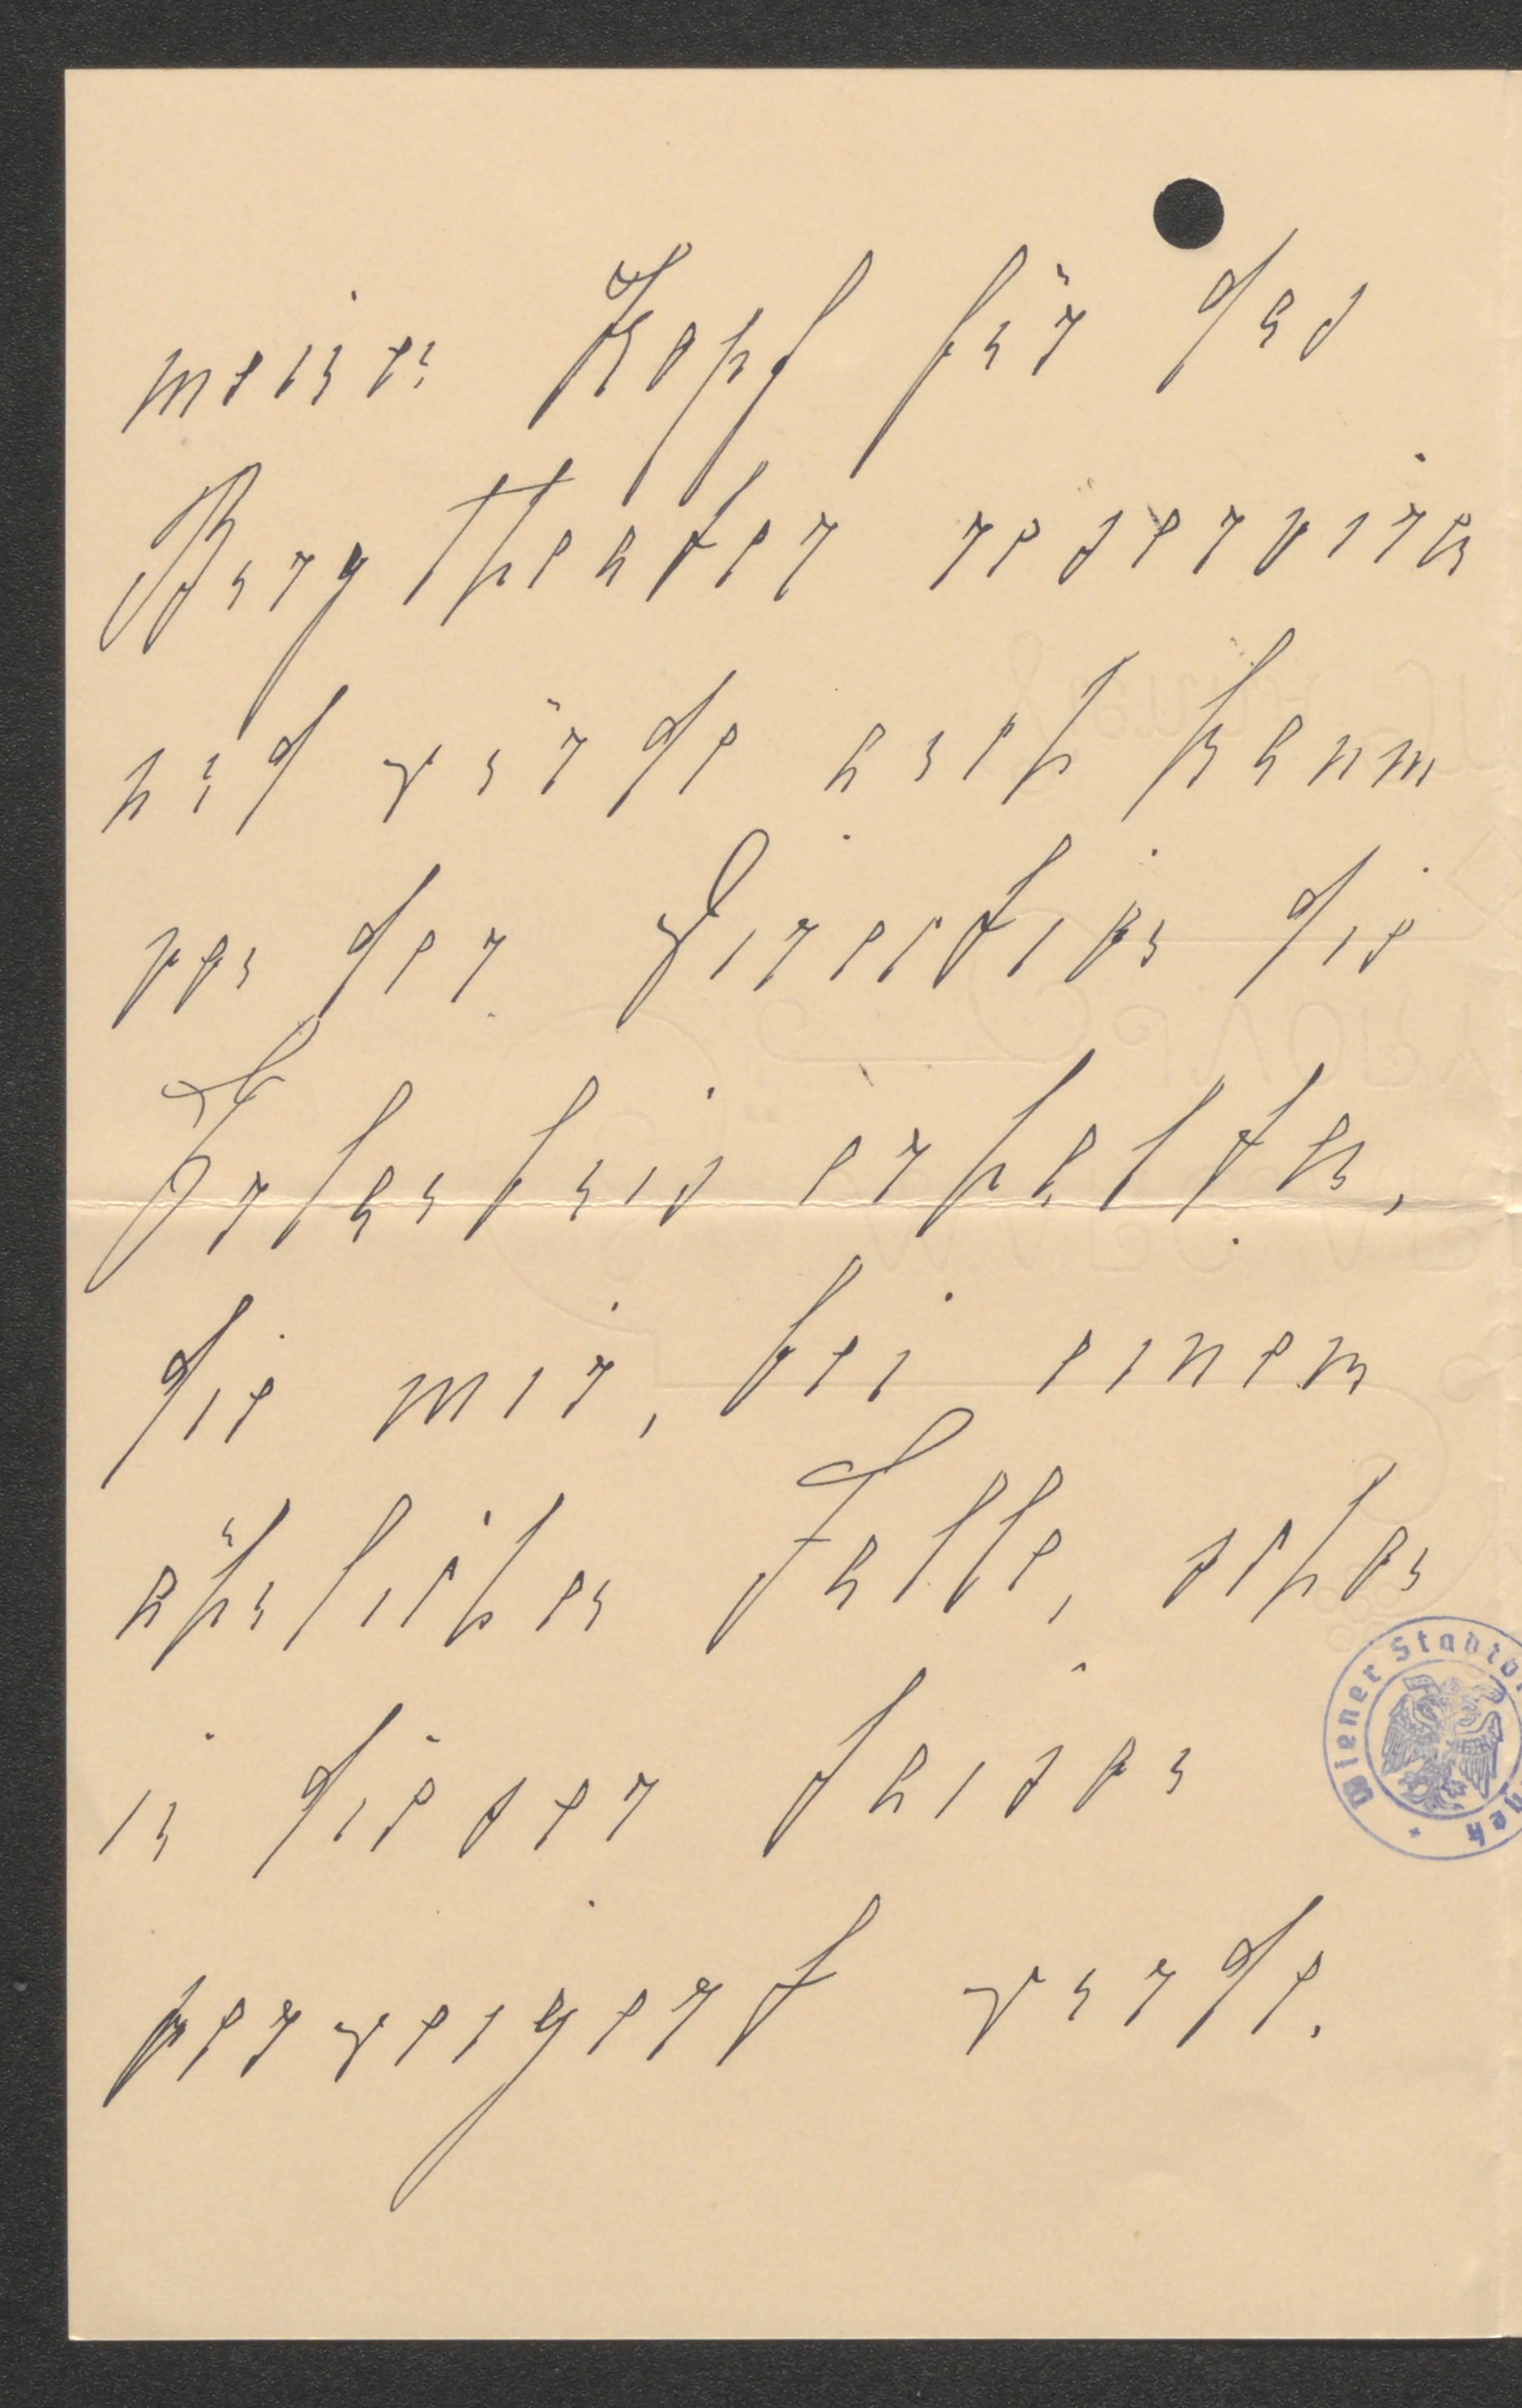 meinen Kopf für das
Burgtheater reserviren
und würde auch kaum
von der Direktion die
Erlaubnis erhalten,
die mir, bei einem
ähnlichen Falle, schon
in dieser Saison
verweigert wurde.
Wiener Stadtb